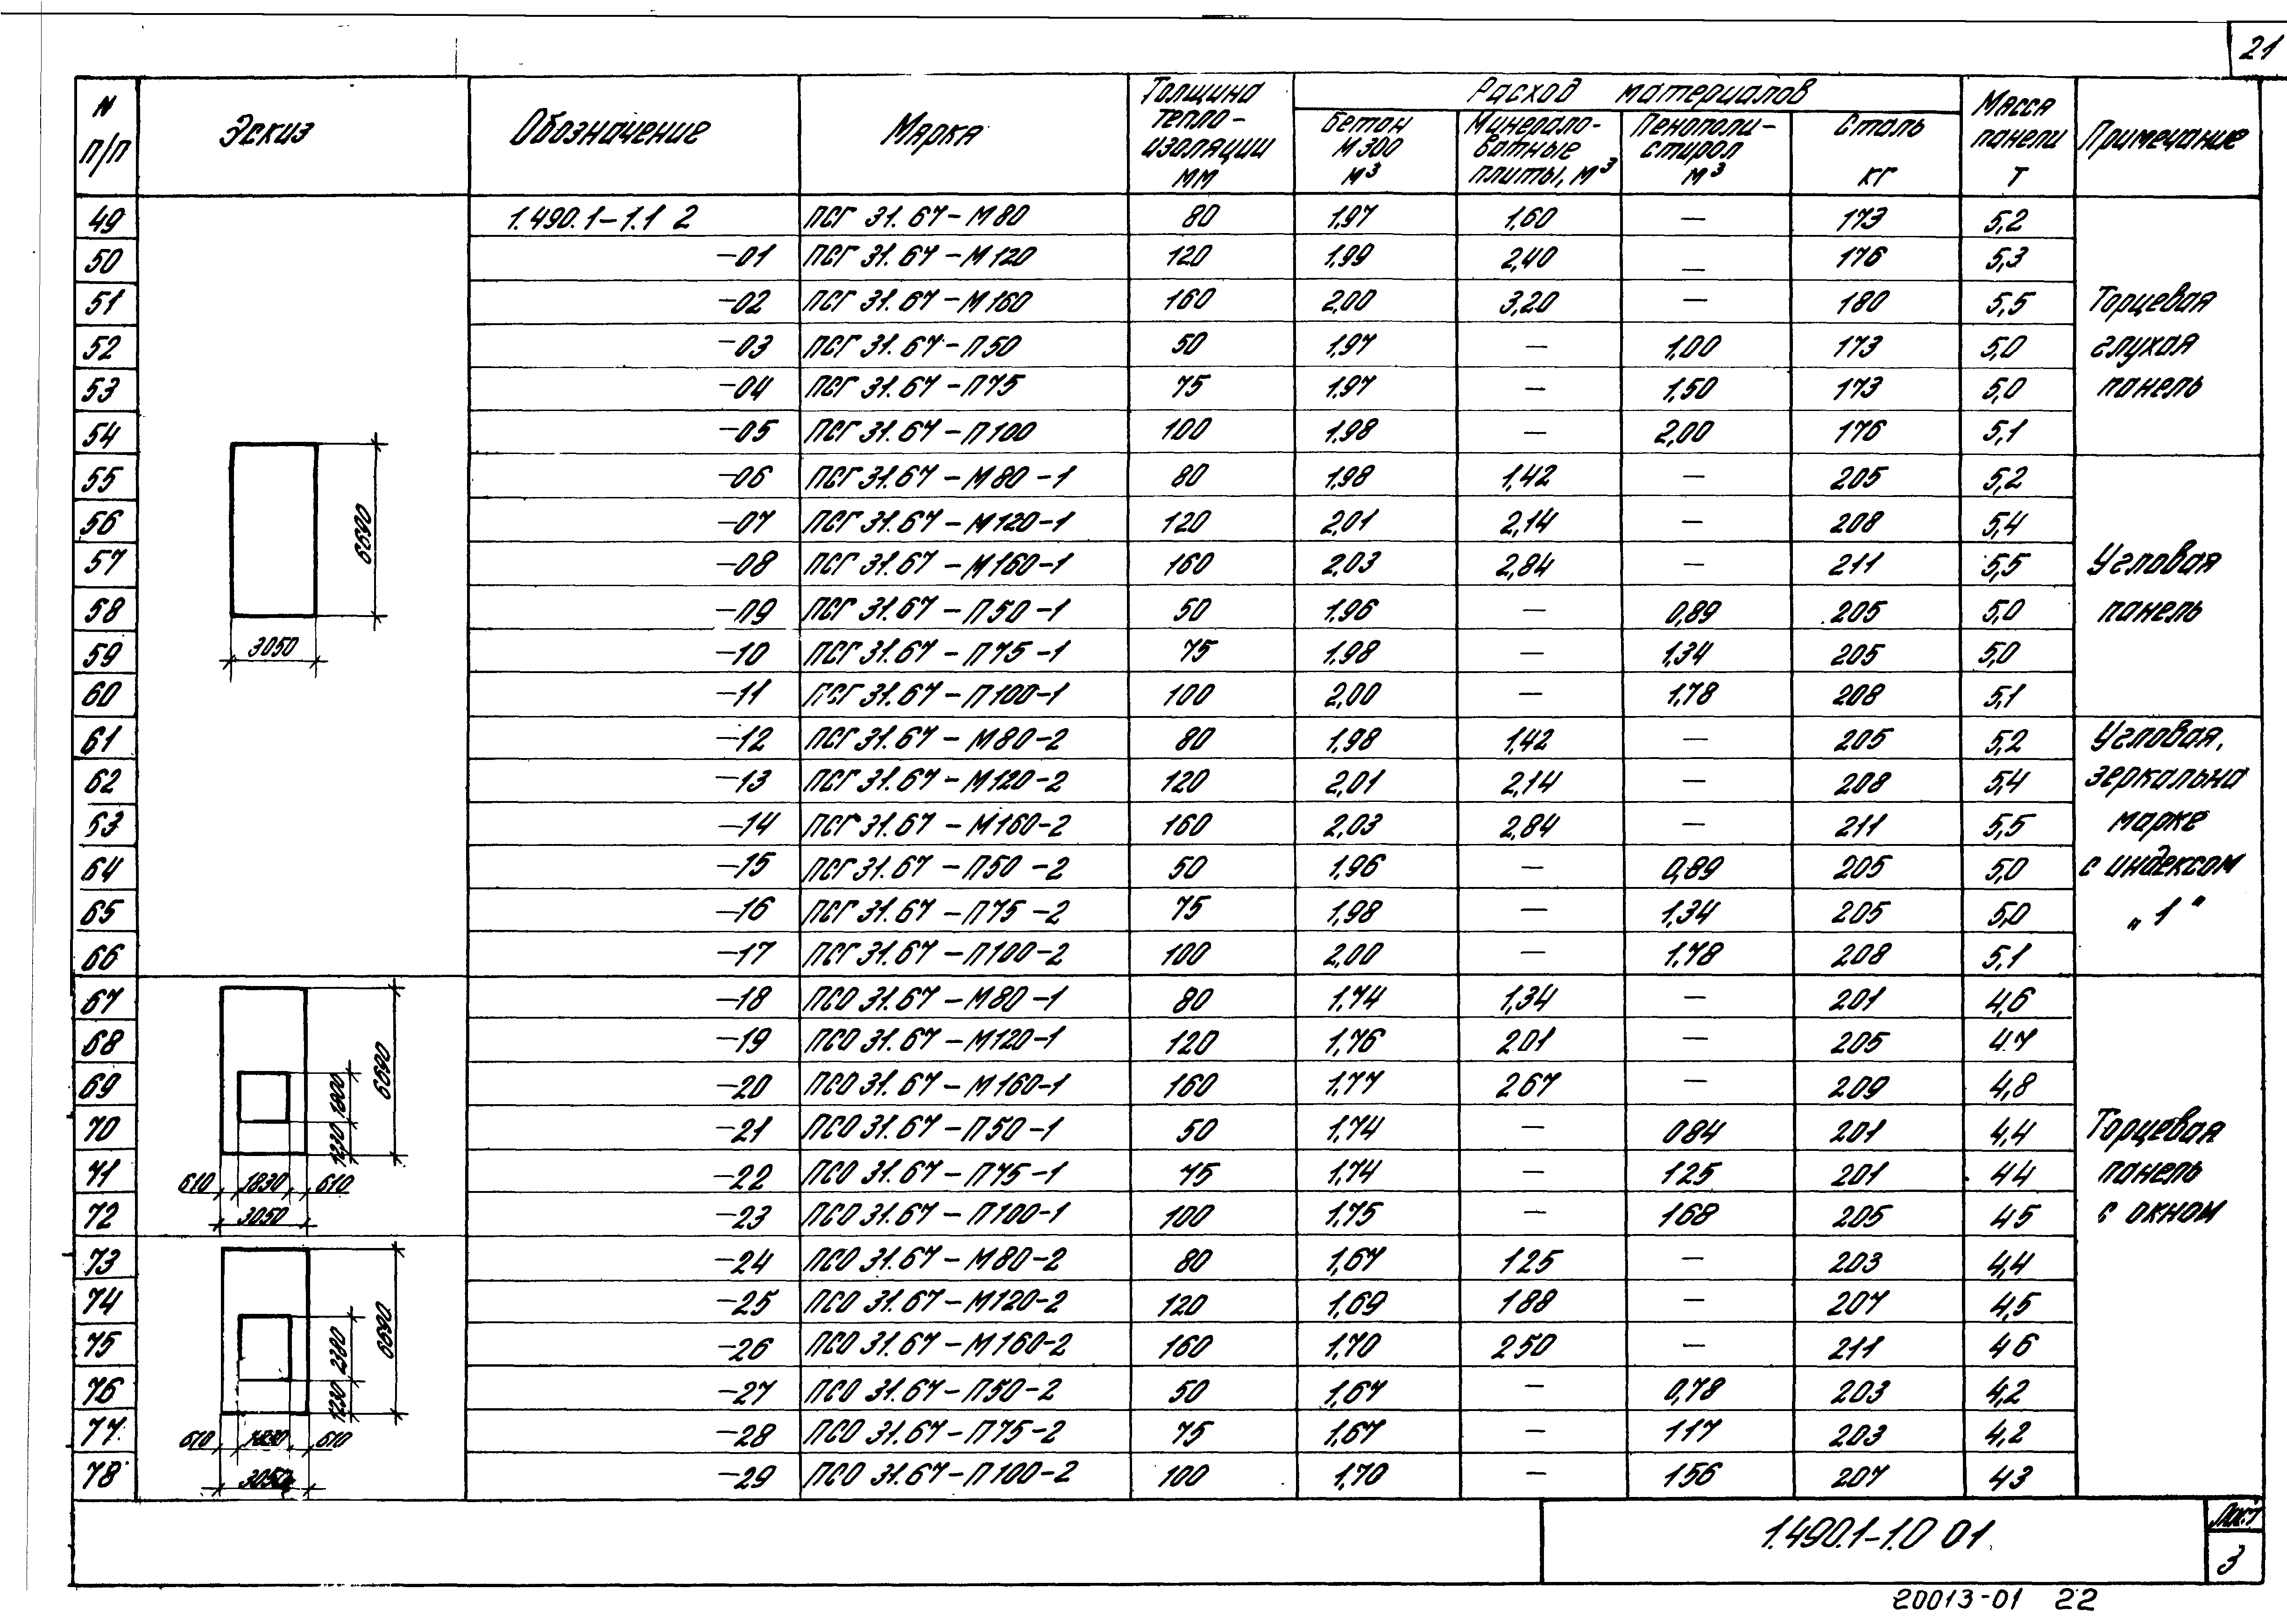 21
N п/п | Эскиз | Обозначение | Марка | Толщина тепло-изоляции мм | Расход материалов | Масса панели т | Примечание
Бетон М300 м³ | Минерало-ватные плиты, м³ | Пенополи-стирол м³ | Сталь кг
49 | 1.490.1-1.1 2 | ПСГ 31.67-М80 | 80 | 1,97 | 1,60 | — | 173 | 5,2
50 | -01 | ПСГ 31.67-М120 | 120 | 1,99 | 2,40 | — | 176 | 5,3
51 | -02 | ПСГ 31.67-М160 | 160 | 2,00 | 3,20 | — | 180 | 5,5 | Торцевая
52 | -03 | ПСГ 31.67-П50 | 50 | 1,97 | — | 1,00 | 173 | 5,0 | глухая
53 | -04 | ПСГ 31.67-П75 | 75 | 1,97 | — | 1,50 | 173 | 5,0 | панель
54 | -05 | ПСГ 31.67-П100 | 100 | 1,98 | — | 2,00 | 176 | 5,1
55 | -06 | ПСГ 31.67-М80-1 | 80 | 1,98 | 1,42 | — | 205 | 5,2
56 | -07 | ПСГ 31.67-М120-1 | 120 | 2,01 | 2,14 | — | 208 | 5,4
57 | -08 | ПСГ 31.67-М160-1 | 160 | 2,03 | 2,84 | — | 211 | 5,5 | Угловая
58 | -09 | ПСГ 31.67-П50-1 | 50 | 1,96 | — | 0,89 | 205 | 5,0 | панель
59 | -10 | ПСГ 31.67-П75-1 | 75 | 1,98 | — | 1,34 | 205 | 5,0
60 | -11 | ПСГ 31.67-П100-1 | 100 | 2,00 | — | 1,78 | 208 | 5,1
61 | -12 | ПСГ 31.67-М80-2 | 80 | 1,98 | 1,42 | — | 205 | 5,2 | Угловая,
62 | -13 | ПСГ 31.67-М120-2 | 120 | 2,01 | 2,14 | — | 208 | 5,4 | зеркальна
63 | -14 | ПСГ 31.67-М160-2 | 160 | 2,03 | 2,84 | — | 211 | 5,5 | марке
64 | -15 | ПСГ 31.67-П50-2 | 50 | 1,96 | — | 0,89 | 205 | 5,0 | с индексом
65 | -16 | ПСГ 31.67-П75-2 | 75 | 1,98 | — | 1,34 | 205 | 5,0 | „1"
66 | -17 | ПСГ 31.67-П100-2 | 100 | 2,00 | — | 1,78 | 208 | 5,1
6690
3050
67 | -18 | ПСО 31.67-М80-1 | 80 | 1,74 | 1,34 | — | 201 | 4,6
68 | -19 | ПСО 31.67-М120-1 | 120 | 1,76 | 201 | — | 205 | 4.7
69 | -20 | ПСО 31.67-М160-1 | 160 | 1,77 | 267 | — | 209 | 4,8
70 | -21 | ПСО 31.67-П50-1 | 50 | 1,74 | — | 084 | 201 | 4,4 | Торцевая
71 | -22 | ПСО 31.67-П75-1 | 75 | 1,74 | — | 125 | 201 | 44 | панель
72 | -23 | ПСО 31.67-П100-1 | 100 | 1,75 | — | 168 | 205 | 45 | с окном
6690
1800
1230
610 1830 610
3050
73 | -24 | ПСО 31.67-М80-2 | 80 | 1,67 | 125 | — | 203 | 4,4
74 | -25 | ПСО 31.67-М120-2 | 120 | 1,69 | 188 | — | 207 | 4,5
75 | -26 | ПСО 31.67-М160-2 | 160 | 1,70 | 250 | — | 211 | 46
76 | -27 | ПСО 31.67-П50-2 | 50 | 1,67 | — | 0,78 | 203 | 4,2
77 | -28 | ПСО 31.67-П75-2 | 75 | 1,67 | — | 117 | 203 | 4,2
78 | -29 | ПСО 31.67-П100-2 | 100 | 1,70 | — | 156 | 207 | 43
6690
2380
1230
610 1830 610
3050
1.490.1-1.0 01
Лист
3
20013-01 22